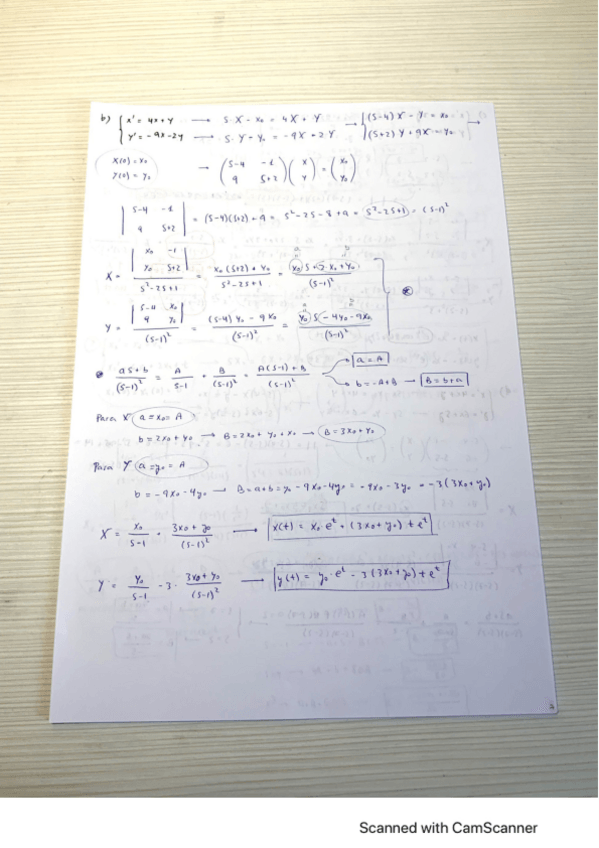 b) { x' = 4x + y → s·X - x₀ = 4X + Y → { (s-4)X - Y = x₀ →
y' = -9x - 2y → s·Y - y₀ = -9X + 2Y { (s+2)Y + 9X = y₀
X(0) = x₀
Y(0) = y₀ → ( s-4 -1 ; 9 s+2 ) ( X ; Y ) = ( x₀ ; y₀ )
| s-4 -1 ; 9 s+2 | = (s-4)(s+2) + 9 = s² - 2s - 8 + 9 = s² - 2s + 1 = (s-1)²
X = | x₀ -1 ; y₀ s+2 | / s² - 2s + 1 = x₀(s+2) + y₀ / s² - 2s + 1 = x₀ s + 2x₀ + y₀ / (s-1)²
Y = | s-4 x₀ ; 9 y₀ | / (s-1)² = (s-4)y₀ - 9x₀ / (s-1)² = y₀ s - 4y₀ - 9x₀ / (s-1)²
as + b / (s-1)² = A / s-1 + B / (s-1)² = A(s-1) + B / (s-1)² → a = A
→ b = -A + B → B = b + a
Para X a = x₀ = A
b = 2x₀ + y₀ → B = 2x₀ + y₀ + x₀ → B = 3x₀ + y₀
Para Y a = y₀ = A
b = -9x₀ - 4y₀ → B = a + b = y₀ - 9x₀ - 4y₀ = -9x₀ - 3y₀ = -3(3x₀ + y₀)
X = x₀ / s-1 + 3x₀ + y₀ / (s-1)² → x(t) = x₀ eᵗ + (3x₀ + y₀) t eᵗ
Y = y₀ / s-1 - 3 · 3x₀ + y₀ / (s-1)² → y(t) = y₀ · eᵗ - 3(3x₀ + y₀) t eᵗ
Scanned with CamScanner